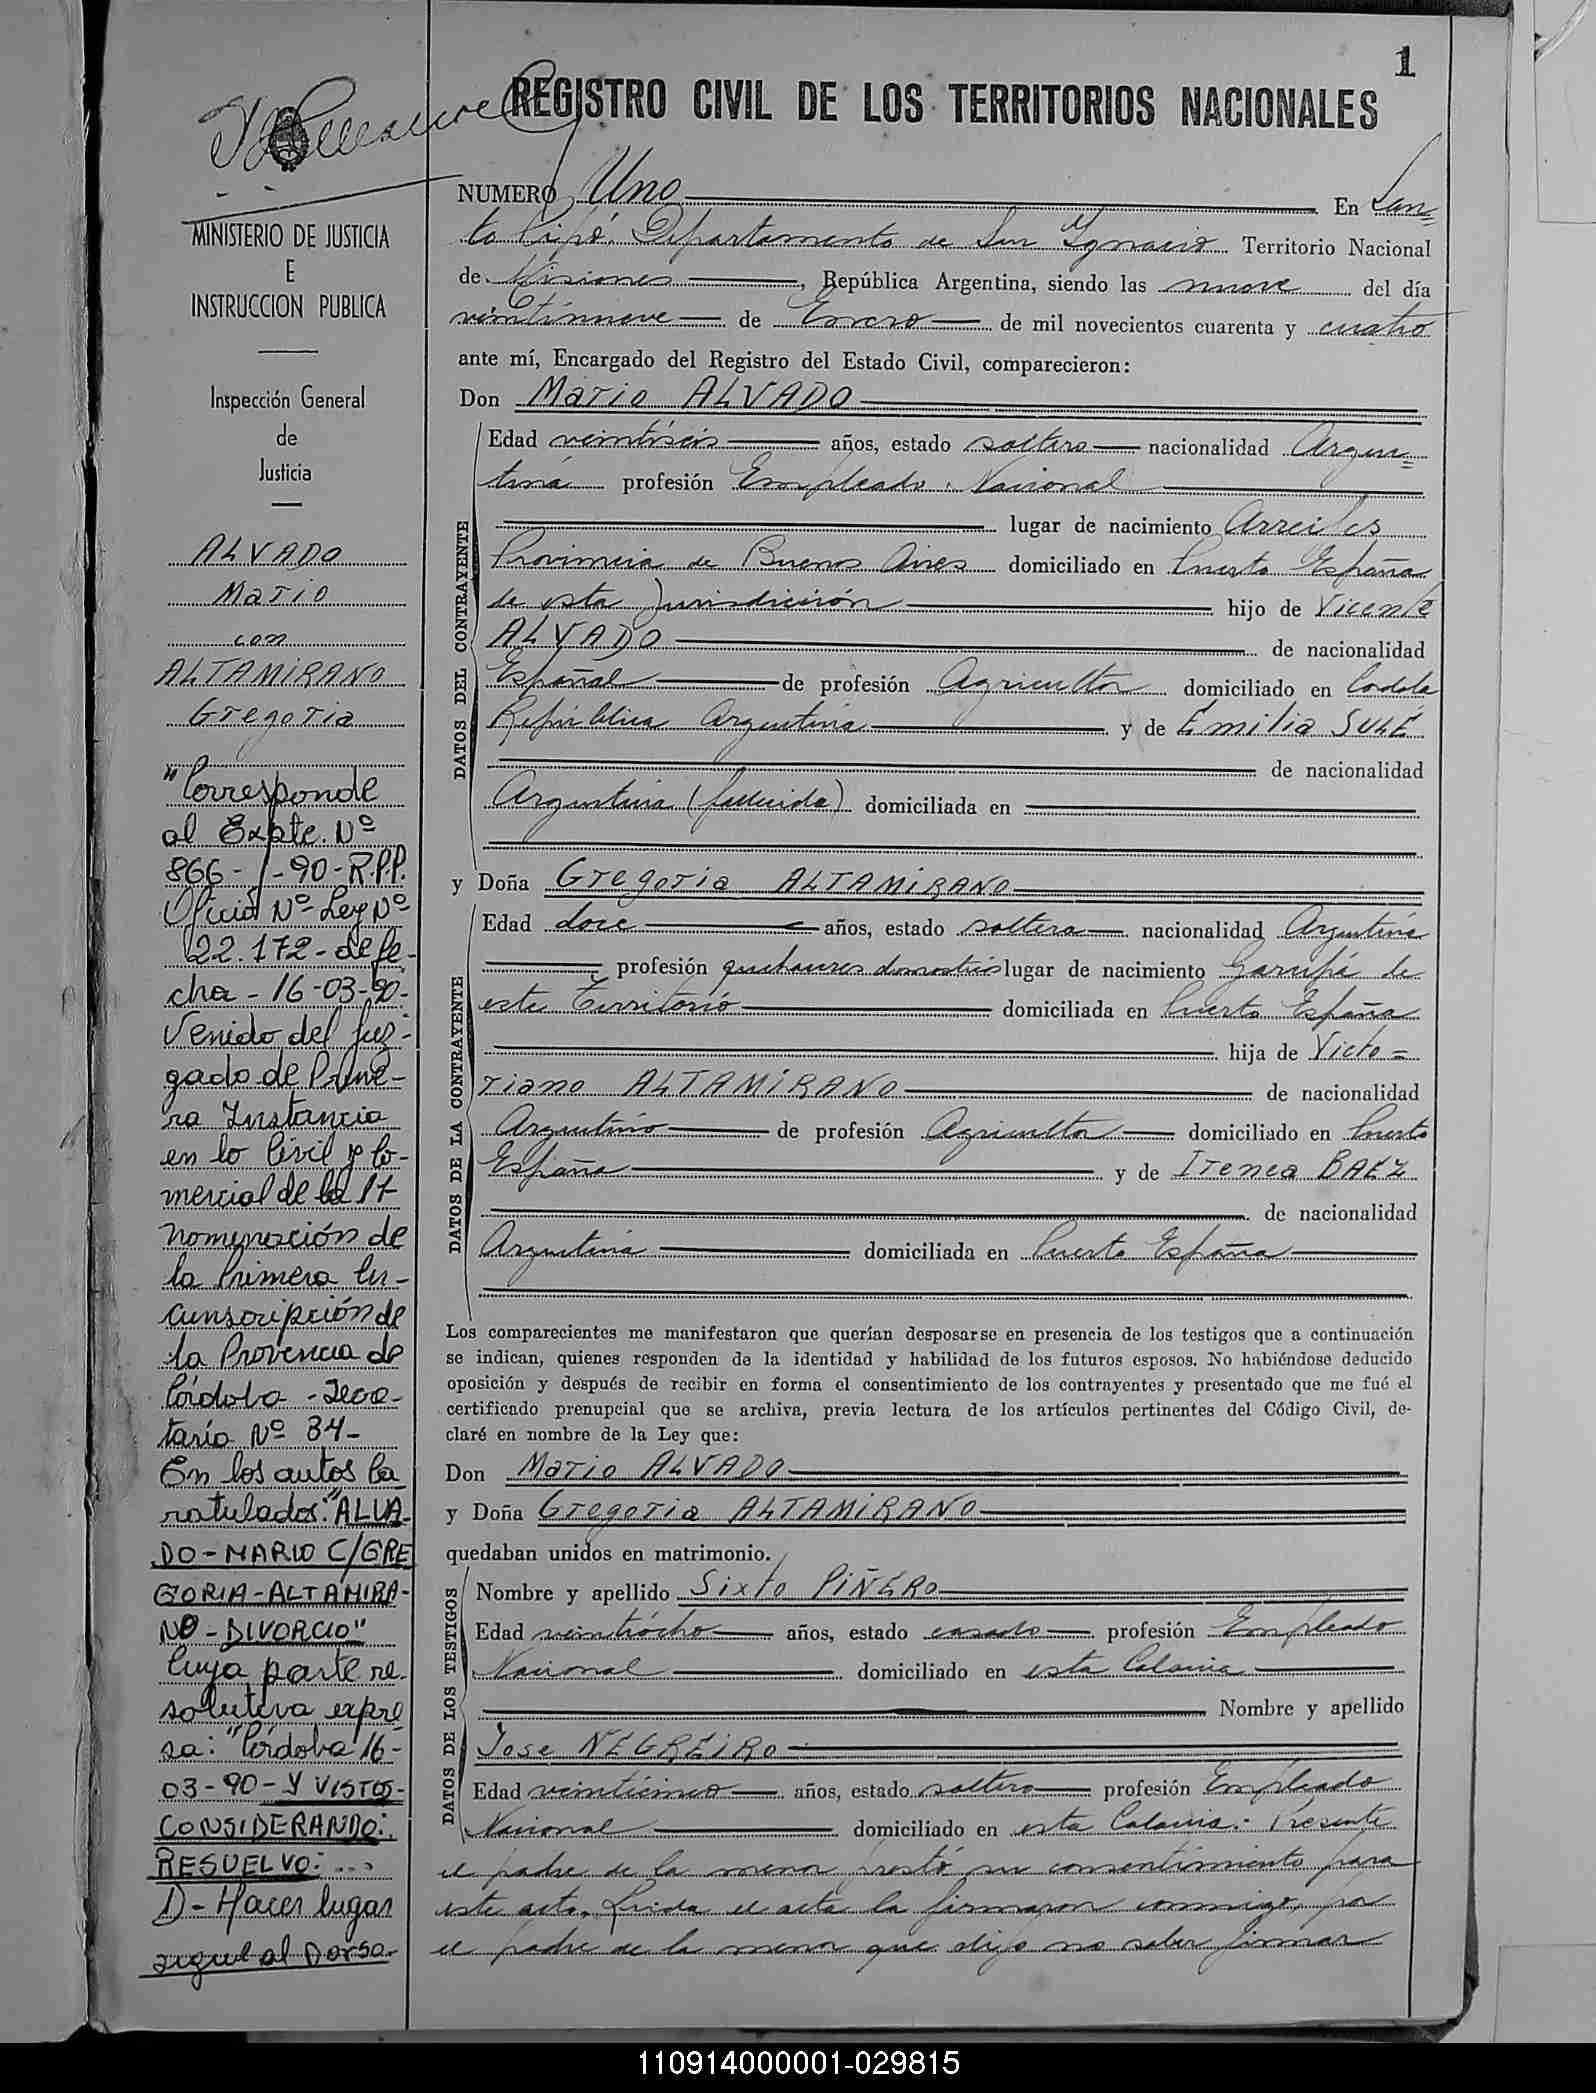 1
REGISTRO CIVIL DE LOS TERRITORIOS NACIONALES
MINISTERIO DE JUSTICIA
E
INSTRUCCION PUBLICA
Inspección General
de
Justicia
ALVADO
Mario
con
ALTAMIRANO
Gregoria
"Corresponde
al Expte. Nº
866-/-90-R.P.P.
Oficio Nº Ley Nº
22.172-de fe-
cha-16-03-90-
Venido del Juz-
gado de Prime-
ra Instancia
en lo Civil y Co-
mercial de la 17
Nominación de
la Primera Cir-
cunscripción de
la Provincia de
Córdoba-Secre-
taría Nº 34-
En los autos Ca
ratulados: "ALVA-
DO-MARIO C/GRE
GORIA-ALTAMIRA-
NO-DIVORCIO"
Cuya parte re-
solutiva expre
sa: "Córdoba 16-
03-90-Y VISTOS-
CONSIDERANDO:.
RESUELVO:...
1)-Hacer lugar
sigue al Dorso.
NUMERO Uno En San=
to Pipó. Departamento de San Ygnacio Territorio Nacional
de Misiones, República Argentina, siendo las nueve del día
veintinueve de Enero de mil novecientos cuarenta y cuatro
ante mí, Encargado del Registro del Estado Civil, comparecieron:
Don Mario ALVADO
DATOS DEL CONTRAYENTE
Edad veintiséis años, estado soltero nacionalidad Argen=
tina profesión Empleado Nacional
lugar de nacimiento Arrecifes
Provincia de Buenos Aires domiciliado en Puerto España
de esta Jurisdicción hijo de Vicente
ALVADO de nacionalidad
Español de profesión Agricultor domiciliado en
República Argentina y de Emilia SULÉ
de nacionalidad
Argentina (fallecida) domiciliada en
y Doña Gregoria ALTAMIRANO
DATOS DE LA CONTRAYENTE
Edad doce años, estado soltera nacionalidad Argentina
profesión quehaceres domésticos lugar de nacimiento Garupá de
este Territorio domiciliada en Puerto España
hija de Victo=
riano ALTAMIRANO de nacionalidad
Argentino de profesión Agricultor domiciliado en Puerto
España y de Irenea BAEZ
de nacionalidad
Argentina domiciliada en Puerto España
Los comparecientes me manifestaron que querían desposarse en presencia de los testigos que a continuación
se indican, quienes responden de la identidad y habilidad de los futuros esposos. No habiéndose deducido
oposición y después de recibir en forma el consentimiento de los contrayentes y presentado que me fué el
certificado prenupcial que se archiva, previa lectura de los artículos pertinentes del Código Civil, de-
claré en nombre de la Ley que:
Don Mario ALVADO
y Doña Gregoria ALTAMIRANO
quedaban unidos en matrimonio.
DATOS DE LOS TESTIGOS
Nombre y apellido Sixto PIÑERO
Edad veintiócho años, estado casado profesión Empleado
Nacional domiciliado en esta Colonia
Nombre y apellido
Jose NEGREIRO
Edad veinticinco años, estado soltero profesión Empleado
Nacional domiciliado en esta Colonia.- Presente
el padre de la menor prestó su consentimiento para
este acto. Leída el acta la firmaron conmigo, por
el padre de la menor que dijo no saber firmar
110914000001-029815